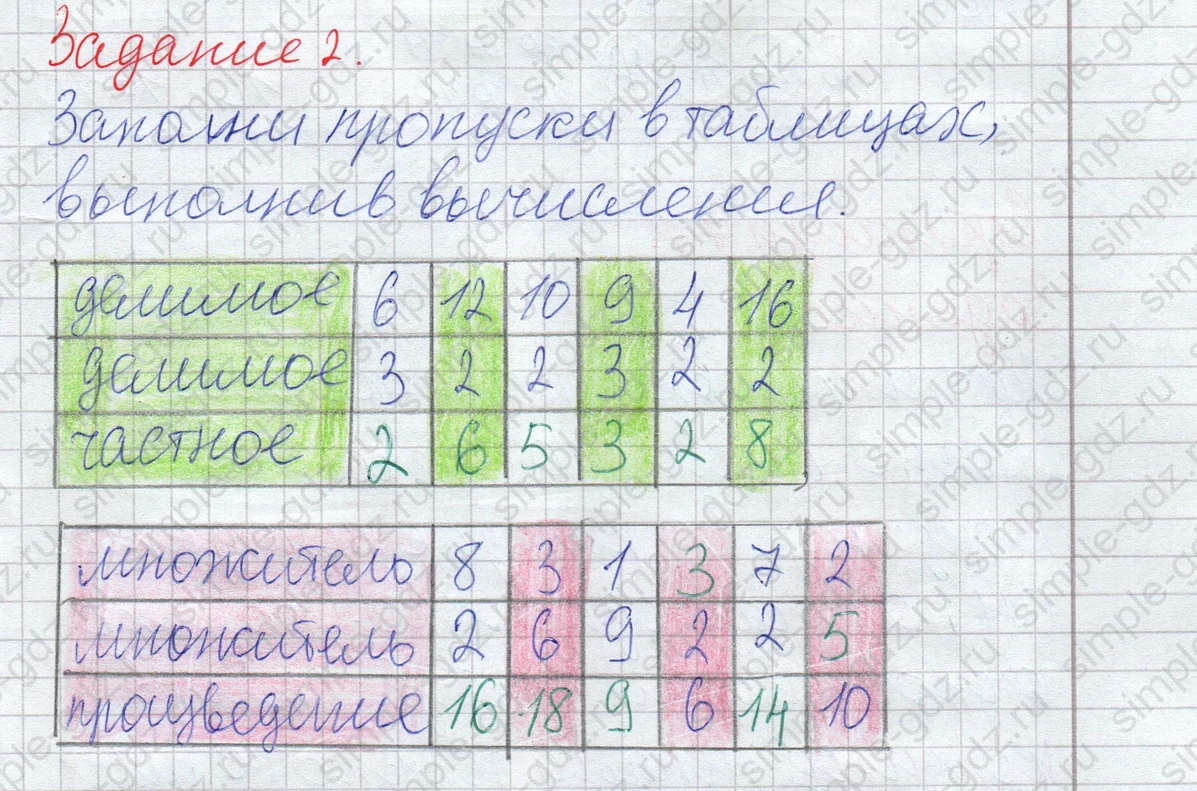 Задание 2.
Заполни пропуски в таблицах,
выполнив вычисления.
делимое 6 12 10 9 4 16
делимое 3 2 2 3 2 2
частное 2 6 5 3 2 8
множитель 8 3 1 3 7 2
множитель 2 6 9 2 2 5
произведение 16 18 9 6 14 10
simple-gdz.ru